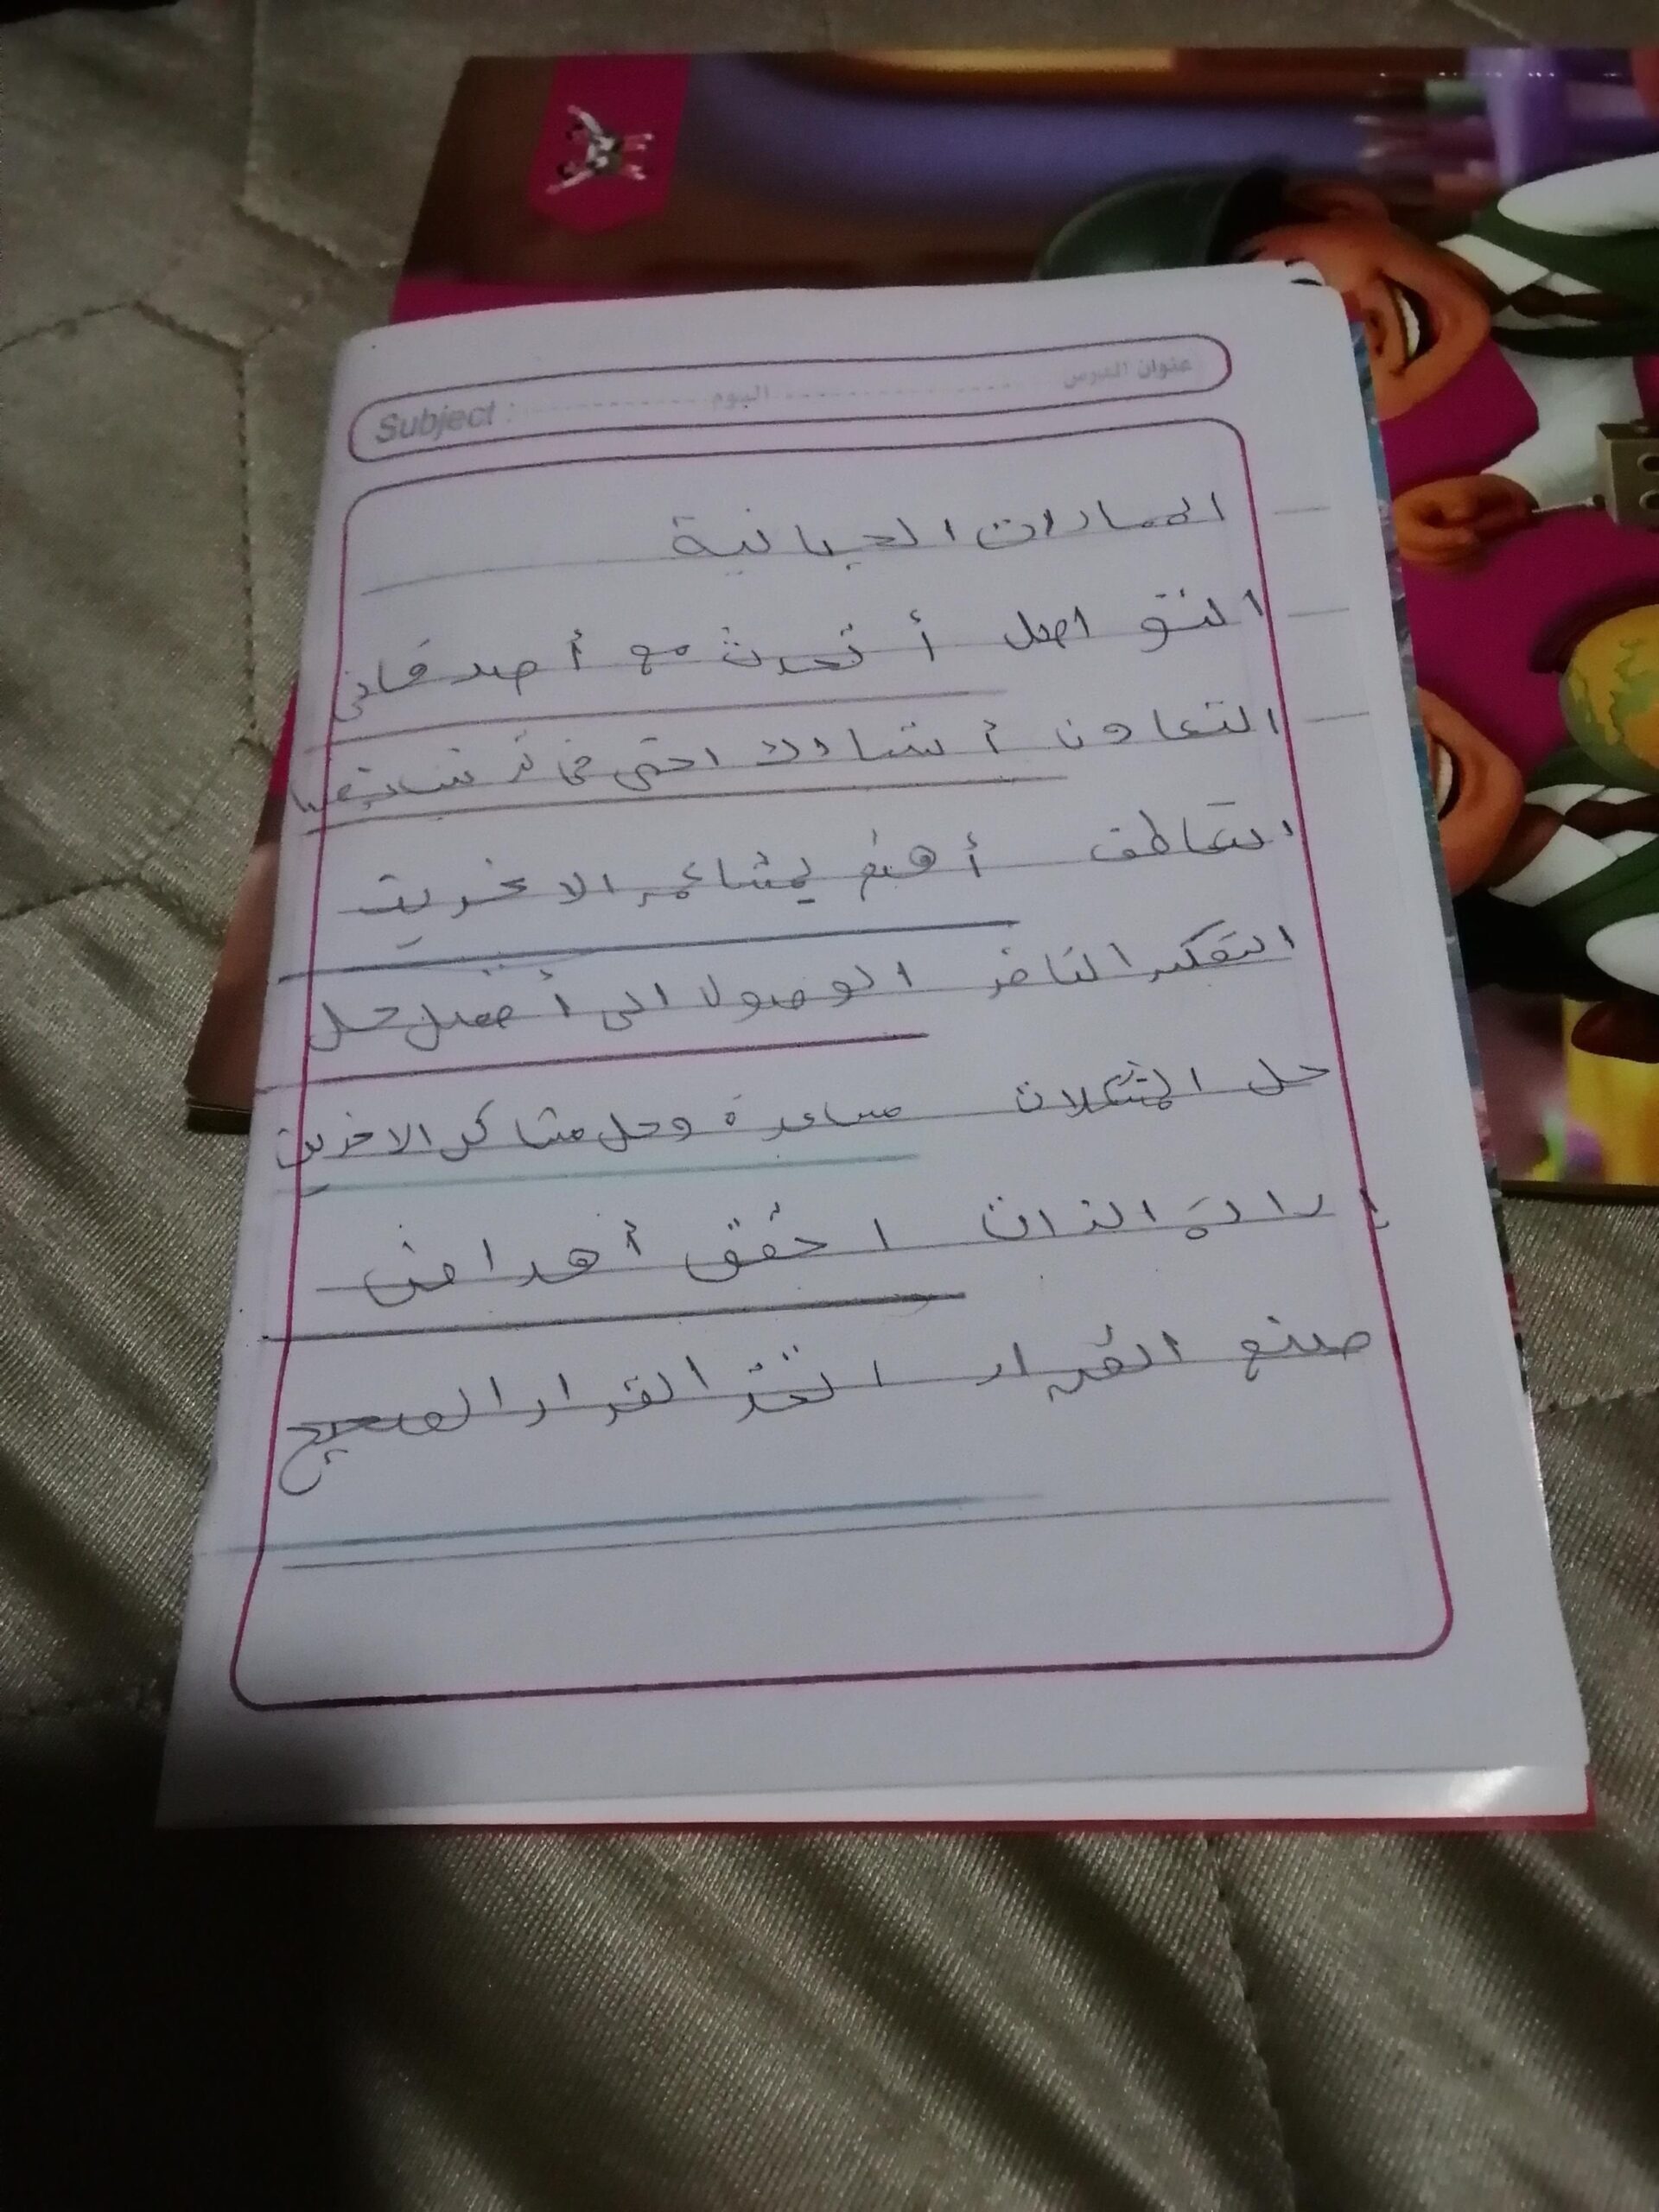 عنوان الدرس اليوم Subject :
المهارات الحياتية
التواصل أتحدث مع أصدقائى
التعاون أشارك اختى فى
التعاطف أهتم بمشاعر الاخرين
التفكير الناقد الوصول الى أفضل حل
حل المشكلات مساعدة وحل مشاكل الاخرين
إدارة الذات احقق أهدافى
صنع القرار اتخذ القرار الصحيح